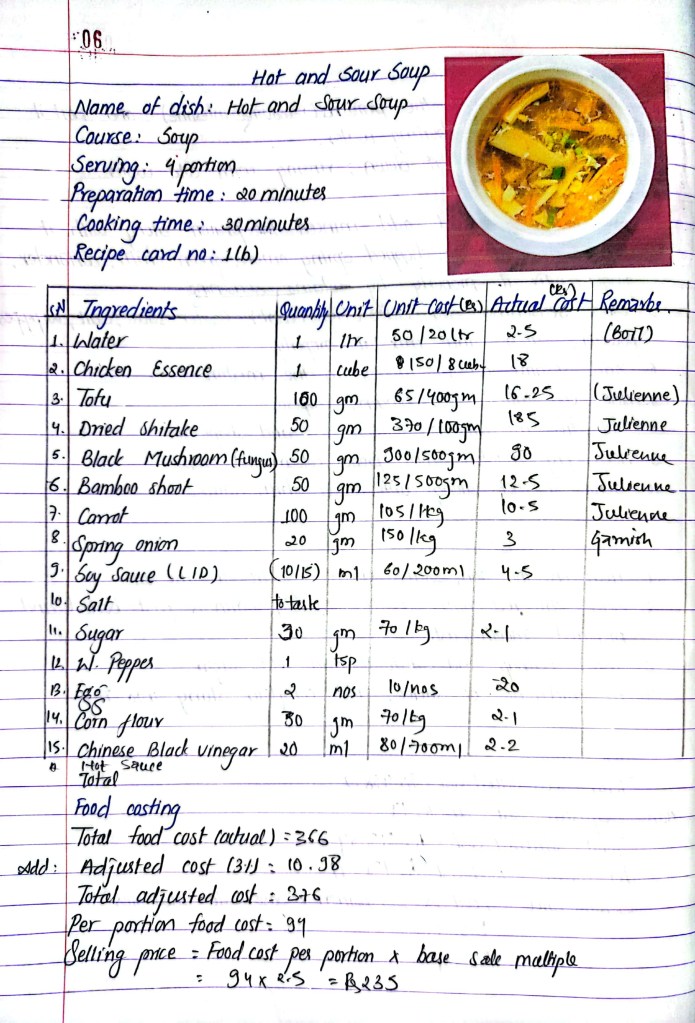 06
Hot and Sour Soup
Name of dish: Hot and Sour Soup
Course: Soup
Serving: 4 portion
Preparation time: 20 minutes
Cooking time: 30 minutes
Recipe card no: 1(b)
SN Ingredients Quantity Unit Unit Cost (Rs) Actual Cost (Rs) Remarks
1. Water 1 ltr 50/20ltr 2.5 (Boil)
2. Chicken Essence 1 cube 150/8cub 18
3. Tofu 100 gm 65/400gm 16.25 (Julienne)
4. Dried Shitake 50 gm 370/100gm 185 Julienne
5. Black Mushroom (fungus) 50 gm 900/500gm 90 Julienne
6. Bamboo shoot 50 gm 125/500gm 12.5 Julienne
7. Carrot 100 gm 105/1kg 10.5 Julienne
8. Spring onion 20 gm 150/1kg 3 Garnish
9. Soy Sauce (L/D) (10/15) ml 60/200ml 4.5
10. Salt to taste
11. Sugar 30 gm 70/kg 2.1
12. W. Pepper 1 tsp
13. Egg 2 nos 10/nos 20
14. Corn flour 30 gm 70/kg 2.1
15. Chinese Black vinegar 20 ml 80/700ml 2.2
Hot Sauce
Total
Food costing
Total food cost (actual) = 366
Add: Adjusted cost (3%) = 10.98
Total adjusted cost = 376
Per portion food cost = 94
Selling price = Food cost per portion x base sale multiple
= 94 x 2.5 = Rs 235